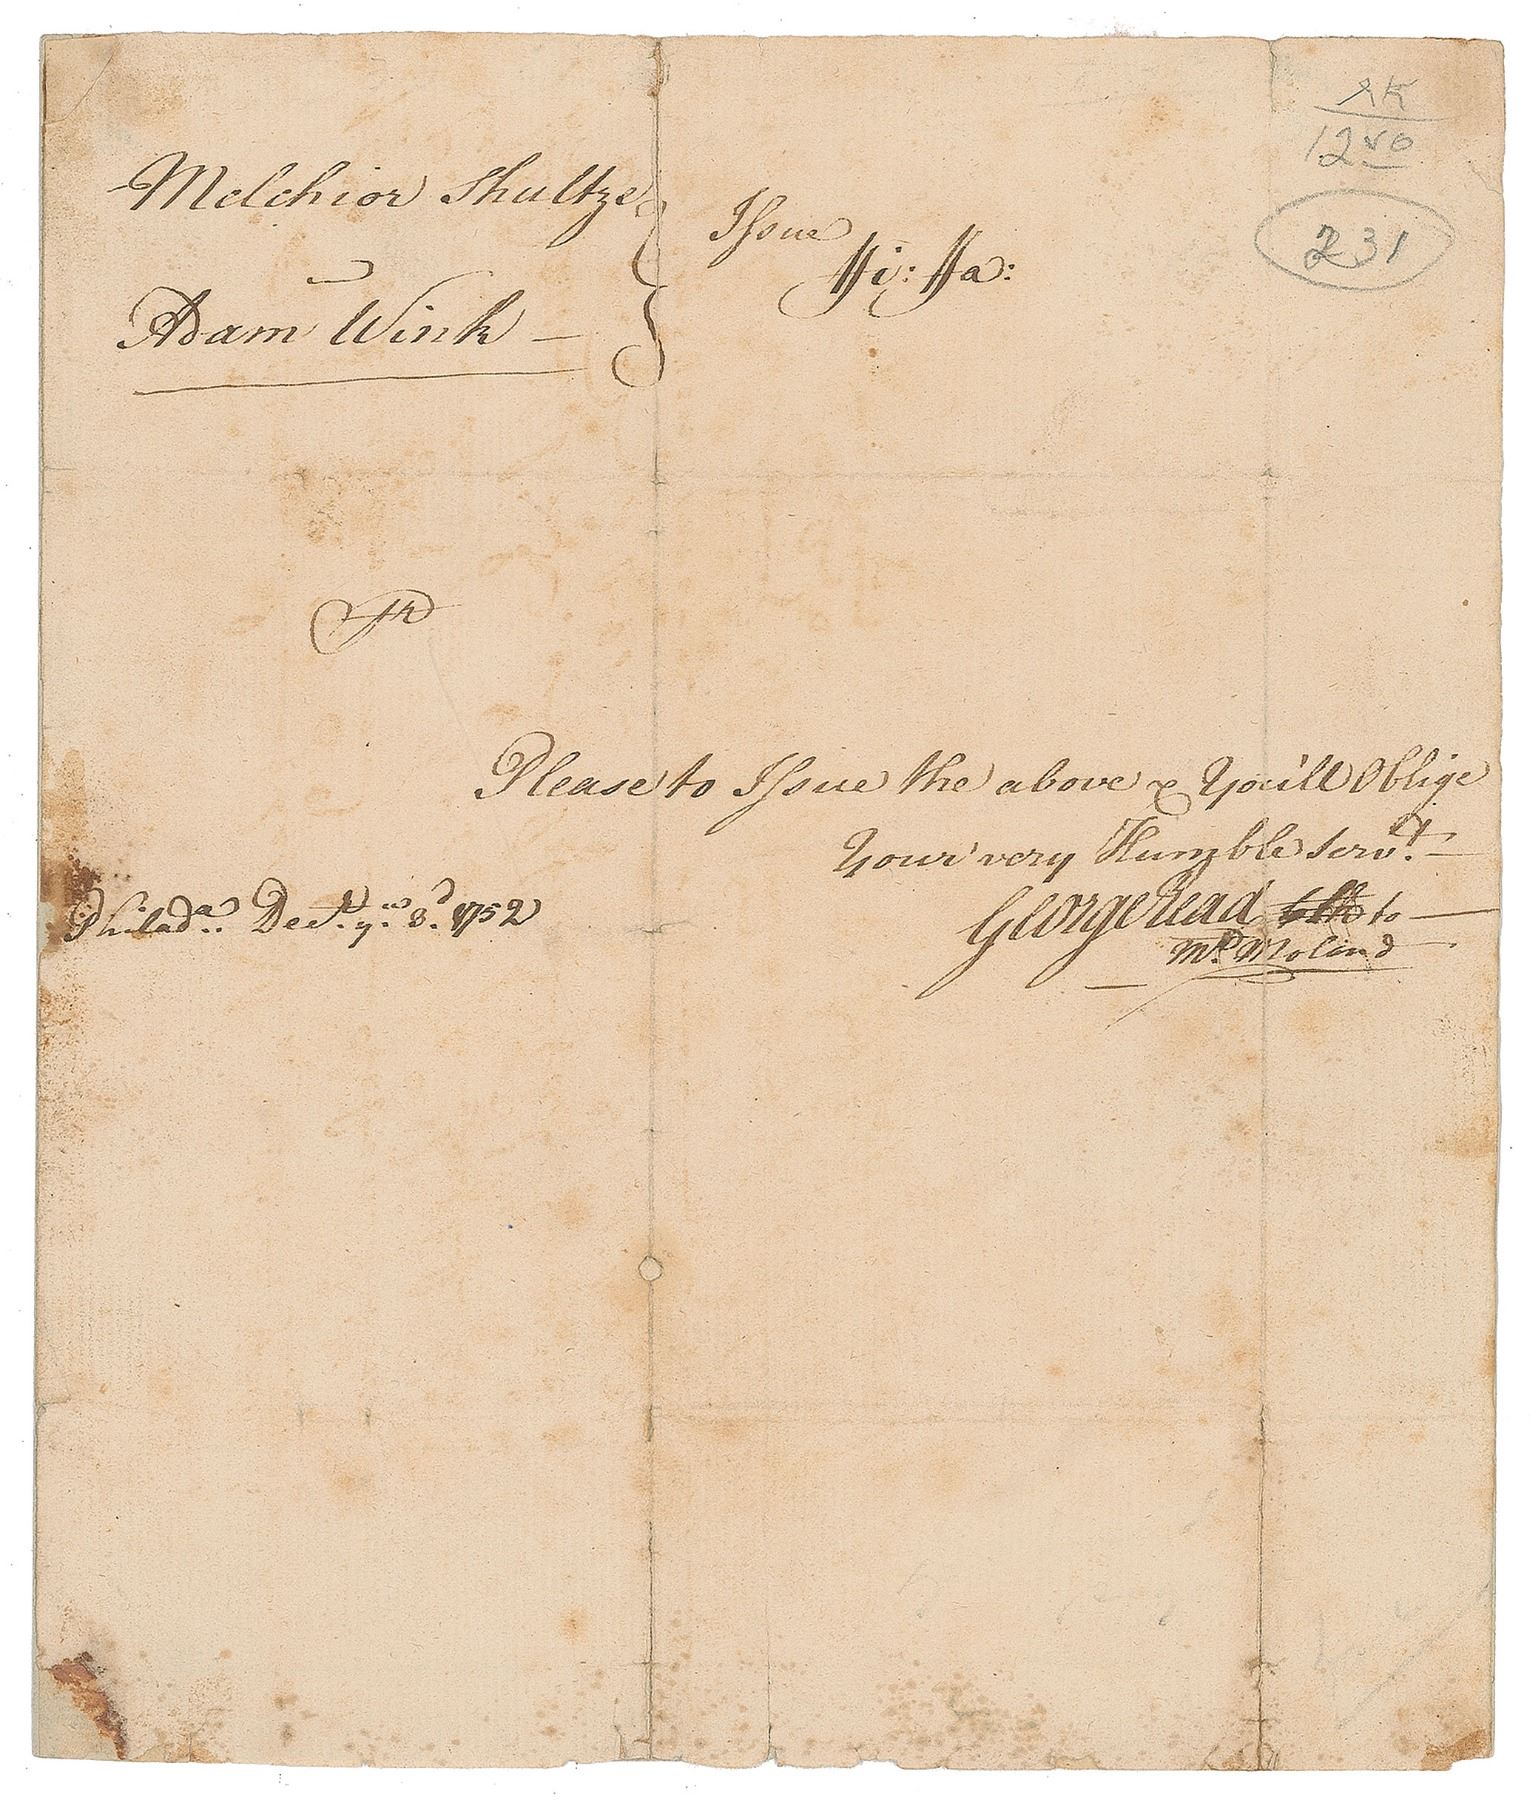 Melchior Shultze
Issue
Fi: Fa:
Adam Wink —
Sr
Please to Issue the above & You'll Oblige
Your very Humble Servt. —
George Read to —
Mr. Moland
Philada. Decr. ye. 3d. 1752
12 50
231